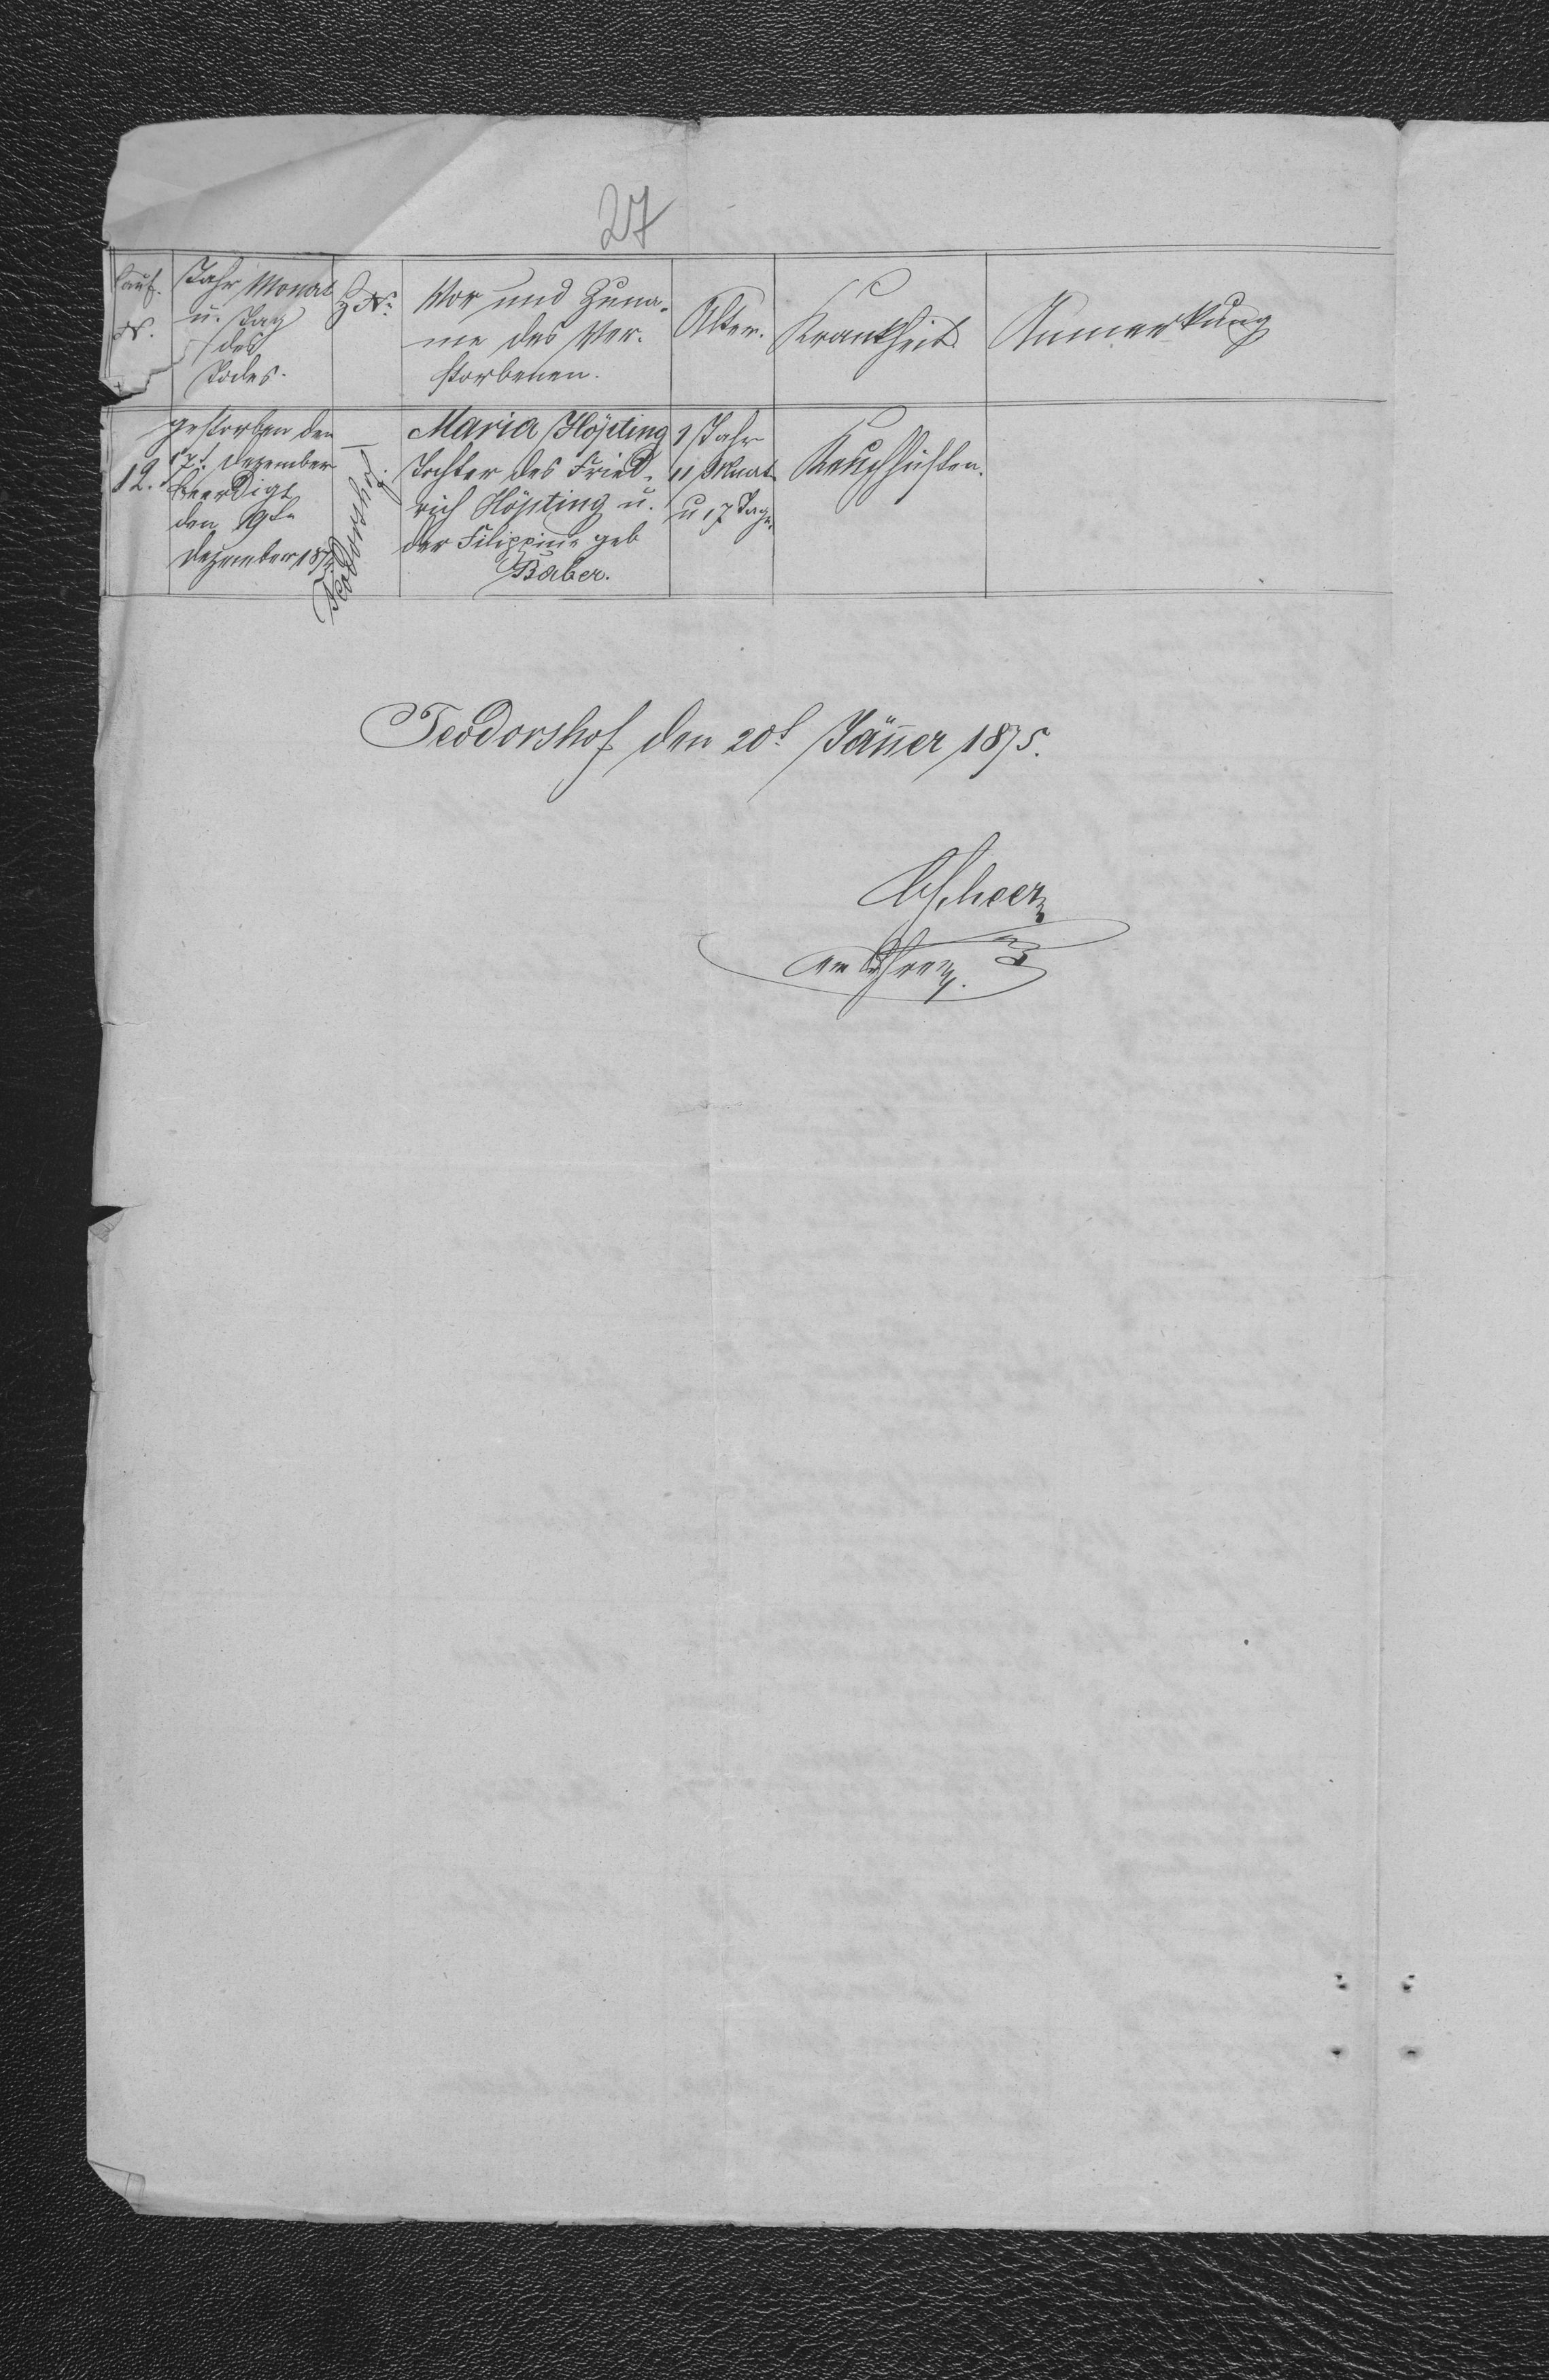 27
Lauf. N.
Jahr Monat
u. Tag
des
Todes.
H N:
Vor und Zuna-
me des Ver-
storbenen.
Alter.
Krankheit
Anmerkung
12.
gestorben den
17t Dezember
beerdigt
den 19tn
Dezember 187
Teodorshof
Maria Höpting
Tochter des Fried-
rich Höpting u.
der Filippine geb
Baber.
1 Jahr
11 Monat
u 17 Tage
Keuchhusten.
Teodorshof den 20t Jäner 1875.
Scheer